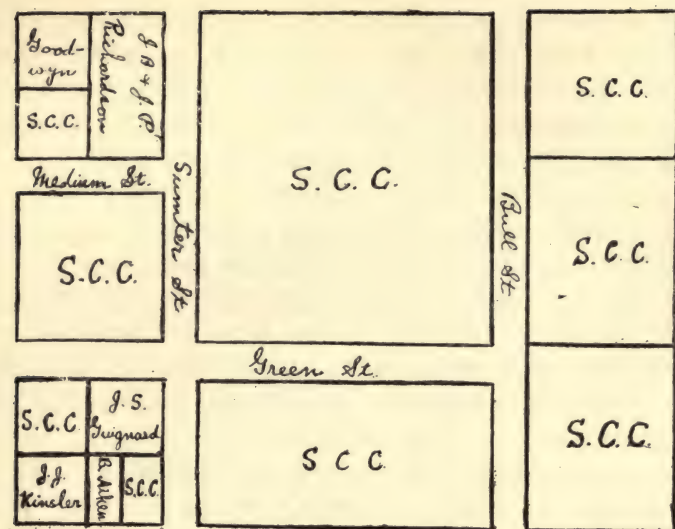 Good-
wyn
J. B. & J. P.
Richardson
S.C.C.
Medium St.
S.C.C.
Sumter St
S.C.C.
Bull St
S.C.C.
S.C.C.
S.C.C.
Green St.
S.C.C.
J.S.
Guignard
J.J.
Kinsler
B. Aiken
S.C.C.
S C C